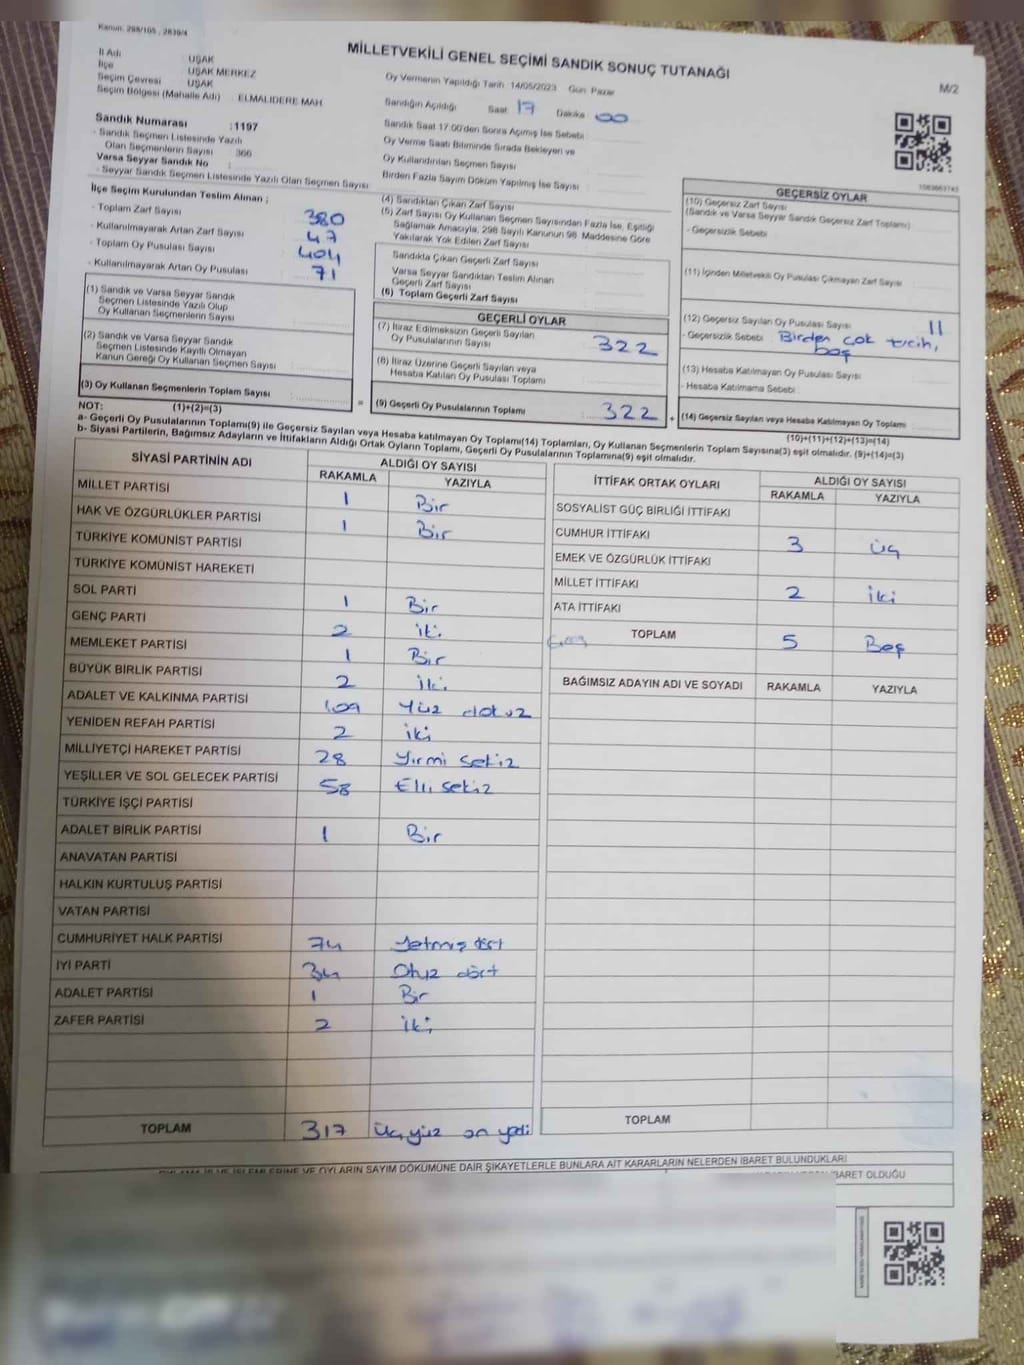 Kanun: 298/105 , 2839/4
MİLLETVEKİLİ GENEL SEÇİMİ SANDIK SONUÇ TUTANAĞI
M/2
İl Adı : UŞAK
İlçe : UŞAK MERKEZ
Seçim Çevresi : UŞAK
Seçim Bölgesi (Mahalle Adı) : ELMALIDERE MAH
Oy Vermenin Yapıldığı Tarih :14/05/2023 Gün: Pazar
Sandığın Açıldığı Saat 17 Dakika 00
Sandık Saat 17.00'den Sonra Açımış İse Sebebi
Oy Verme Saati Bitiminde Sırada Bekleyen ve
Oy Kullandırılan Seçmen Sayısı
Birden Fazla Sayım Döküm Yapılmış İse Sayısı :
Sandık Numarası :1197
- Sandık Seçmen Listesinde Yazılı
Olan Seçmenlerin Sayısı : 366
Varsa Seyyar Sandık No :
- Seyyar Sandık Seçmen Listesinde Yazılı Olan Seçmen Sayısı
İlçe Seçim Kurulundan Teslim Alınan ;
- Toplam Zarf Sayısı 380
- Kullanılmayarak Artan Zarf Sayısı 47
- Toplam Oy Pusulası Sayısı 404
- Kullanılmayarak Artan Oy Pusulası 71
(1) Sandık ve Varsa Seyyar Sandık
Seçmen Listesinde Yazılı Olup
Oy Kullanan Seçmenlerin Sayısı
(2) Sandık ve Varsa Seyyar Sandık
Seçmen Listesinde Kayıtlı Olmayan
Kanun Gereği Oy Kullanan Seçmen Sayısı
(3) Oy Kullanan Seçmenlerin Toplam Sayısı :
(4) Sandıktan Çıkan Zarf Sayısı
(5) Zarf Sayısı Oy Kullanan Seçmen Sayısından Fazla İse, Eşitliği
Sağlamak Amacıyla, 298 Sayılı Kanunun 98. Maddesine Göre
Yakılarak Yok Edilen Zarf Sayısı
Sandıkta Çıkan Geçerli Zarf Sayısı
Varsa Seyyar Sandıktan Teslim Alınan
Geçerli Zarf Sayısı
(6) Toplam Geçerli Zarf Sayısı
GEÇERLİ OYLAR
(7) İtiraz Edilmeksizin Geçerli Sayılan
Oy Pusulalarının Sayısı 322
(8) İtiraz Üzerine Geçerli Sayılan veya
Hesaba Katılan Oy Pusulası Toplamı
= (9) Geçerli Oy Pusulalarının Toplamı 322 +
1083663743
GEÇERSİZ OYLAR
(10) Geçersiz Zarf Sayısı
(Sandık ve Varsa Seyyar Sandık Geçersiz Zarf Toplamı)
- Geçersizlik Sebebi
(11) İçinden Milletvekili Oy Pusulası Çıkmayan Zarf Sayısı
(12) Geçersiz Sayılan Oy Pusulası Sayısı 11
- Geçersizlik Sebebi Birden çok tercih,
boş
(13) Hesaba Katılmayan Oy Pusulası Sayısı :
- Hesaba Katılmama Sebebi :
(14) Geçersiz Sayılan veya Hesaba Katılmayan Oy Toplamı
NOT: (1)+(2)=(3) (10)+(11)+(12)+(13)=(14)
a- Geçerli Oy Pusulaları Toplamı(9) ile Geçersiz Sayılan veya Hesaba katılmayan Oy Toplamı(14) Toplamları, Oy Kullanan Seçmenlerin Toplam Sayısına(3) eşit olmalıdır. (9)+(14)=(3)
b- Siyasi Partilerin, Bağımsız Adayların ve İttifakların Aldığı Ortak Oyların Toplamı, Geçerli Oy Pusulalarının Toplamına(9) eşit olmalıdır.
SİYASİ PARTİNİN ADI ALDIĞI OY SAYISI
RAKAMLA YAZIYLA
MİLLET PARTİSİ 1 Bir
HAK VE ÖZGÜRLÜKLER PARTİSİ 1 Bir
TÜRKİYE KOMÜNİST PARTİSİ
TÜRKİYE KOMÜNİST HAREKETİ
SOL PARTİ 1 Bir
GENÇ PARTİ 2 iki
MEMLEKET PARTİSİ 1 Bir
BÜYÜK BİRLİK PARTİSİ 2 iki
ADALET VE KALKINMA PARTİSİ 109 Yüz dokuz
YENİDEN REFAH PARTİSİ 2 iki
MİLLİYETÇİ HAREKET PARTİSİ 28 Yirmi sekiz
YEŞİLLER VE SOL GELECEK PARTİSİ 58 Elli sekiz
TÜRKİYE İŞÇİ PARTİSİ
ADALET BİRLİK PARTİSİ 1 Bir
ANAVATAN PARTİSİ
HALKIN KURTULUŞ PARTİSİ
VATAN PARTİSİ
CUMHURİYET HALK PARTİSİ 74 Yetmiş dört
İYİ PARTİ 34 Otuz dört
ADALET PARTİSİ 1 Bir
ZAFER PARTİSİ 2 iki
TOPLAM 317 üçyüz on yedi
İTTİFAK ORTAK OYLARI ALDIĞI OY SAYISI
RAKAMLA YAZIYLA
SOSYALİST GÜÇ BİRLİĞİ İTTİFAKI
CUMHUR İTTİFAKI 3 üç
EMEK VE ÖZGÜRLÜK İTTİFAKI
MİLLET İTTİFAKI 2 iki
ATA İTTİFAKI
TOPLAM 5 Beş
BAĞIMSIZ ADAYIN ADI VE SOYADI RAKAMLA YAZIYLA
TOPLAM
OYLAMA İŞ VE İŞLEMLERİNE VE OYLARIN SAYIM DÖKÜMÜNE DAİR ŞİKAYETLERLE BUNLARA AİT KARARLARIN NELERDEN İBARET BULUNDUKLARI
İBARET OLDUĞU